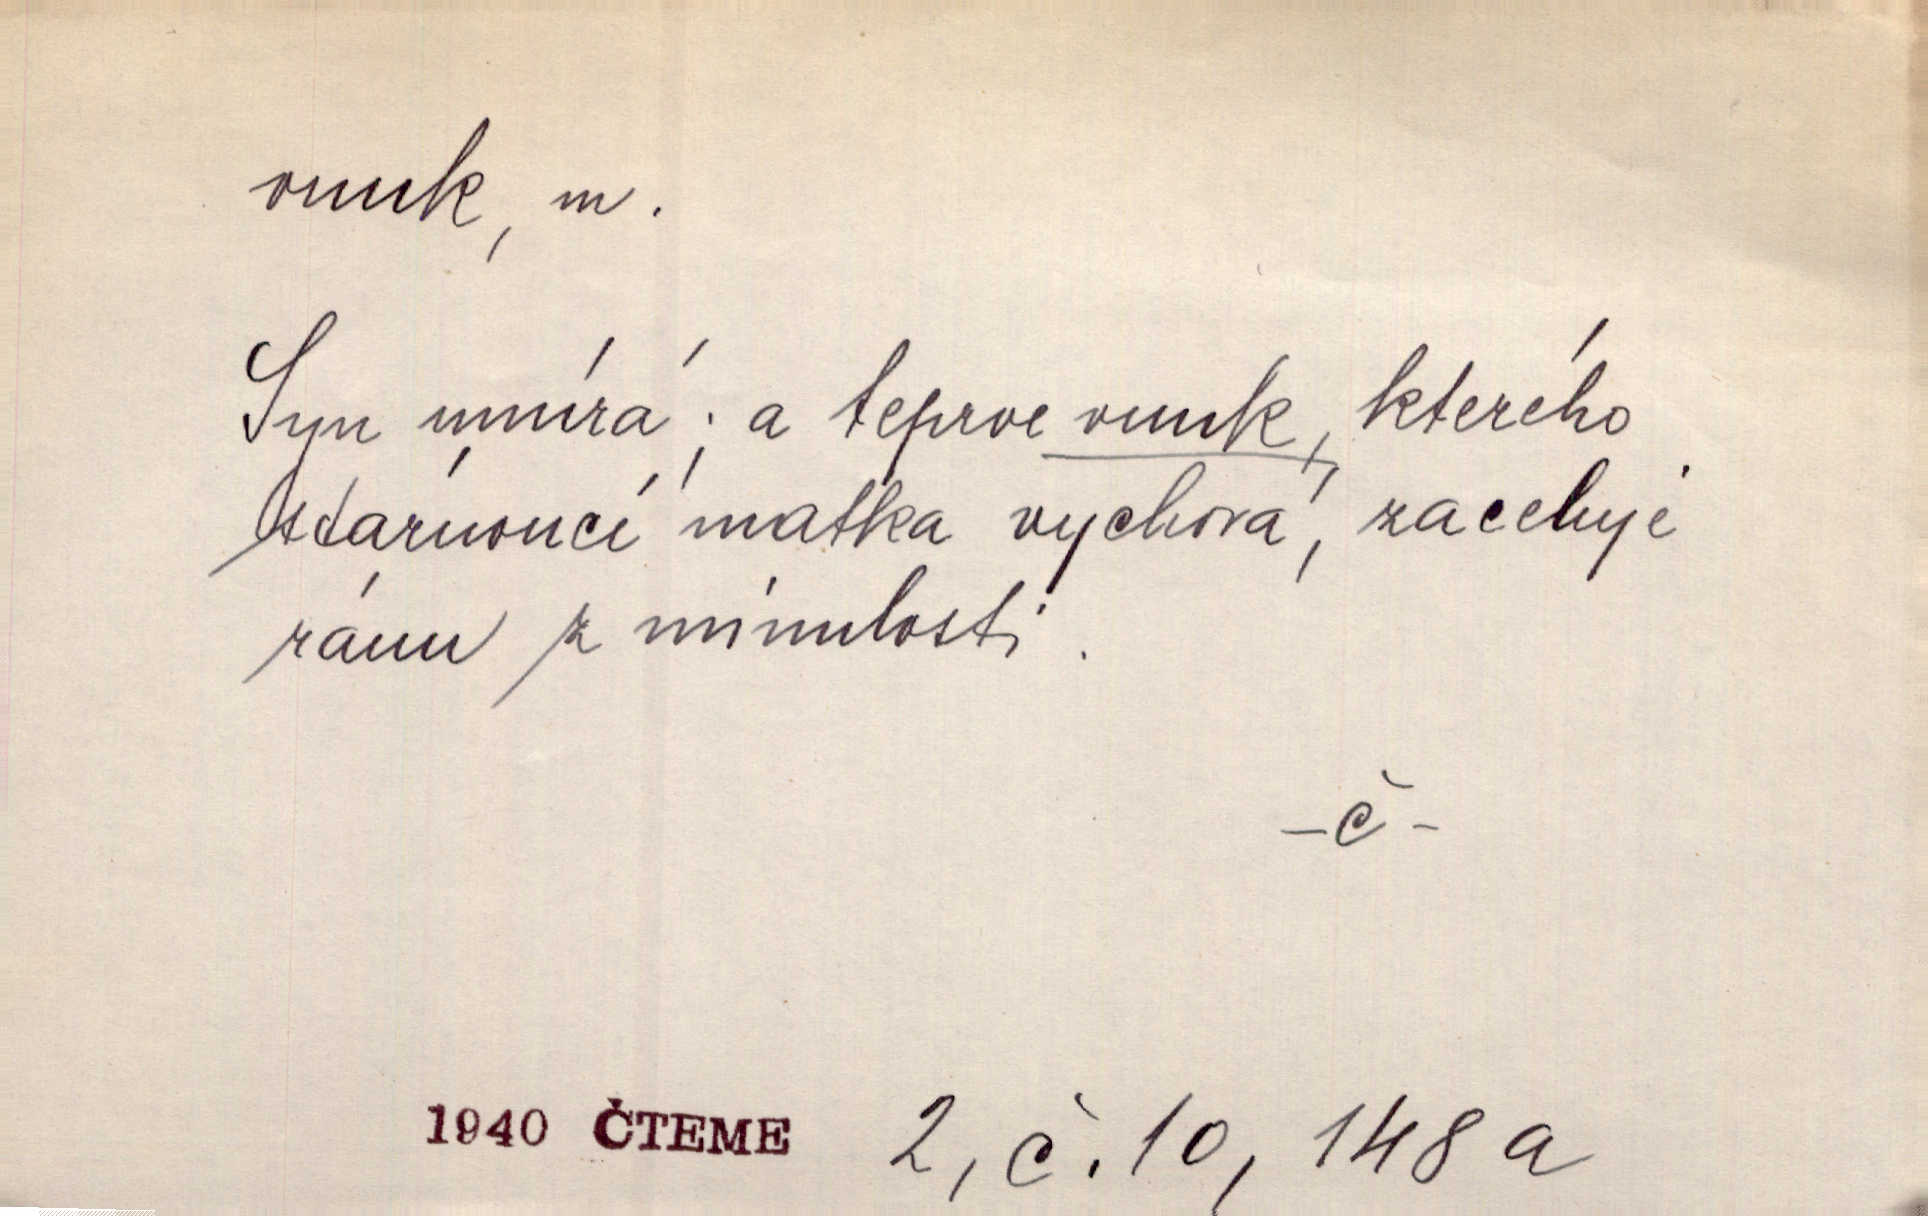 vnuk, m.
Syn umírá; a teprve vnuk, kterého
stárnoucí matka vychová, zaceluje
ránu z minulosti.
-č-
1940 ČTEME 2, č. 10, 148 a